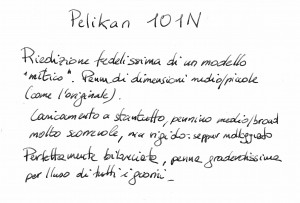 Pelikan 101N
Riedizione fedelissima di un modello
"mitico". Penna di dimensioni medio/piccole
(come l'originale).
Caricamento a stantuffo, pennino medio/broad
molto scorrevole, ma rigido: seppur molleggiato
Perfettamente bilanciata, penna gradevolissima
per l'uso di tutti i giorni_